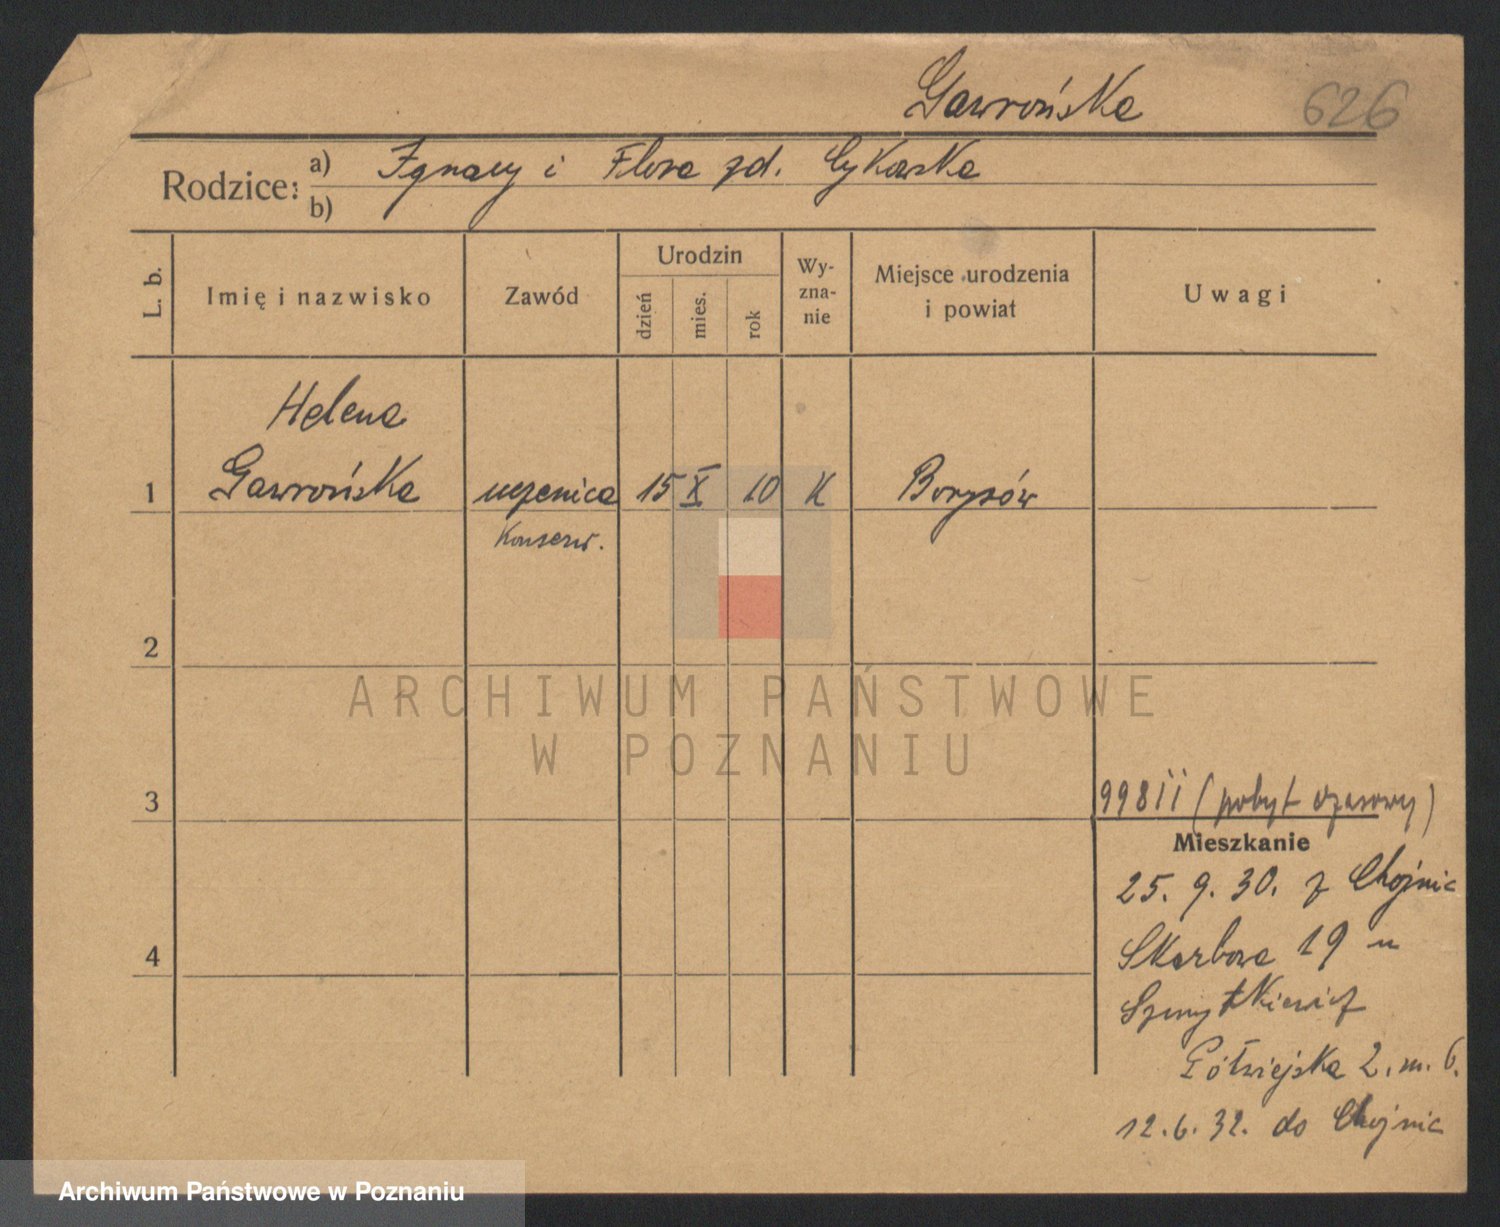 Gawrońska 626
Rodzice: a) Ignacy i Flora zd. Cykowska
b)
L. b. Imię i nazwisko Zawód Urodzin dzień mies. rok Wyznanie Miejsce urodzenia i powiat Uwagi
Helena
1 Gawrońska uczenica 15 X 10 K Borysów
Konserw.
2
ARCHIWUM PAŃSTWOWE
W POZNANIU
3 (pobyt czasowy)
Mieszkanie
25. 9. 30. z Chojnic
4 Skarbowa 19 u
Szmytkiewicz
Półwiejska 2. m. 6.
12. 6. 32. do Chojnic
Archiwum Państwowe w Poznaniu